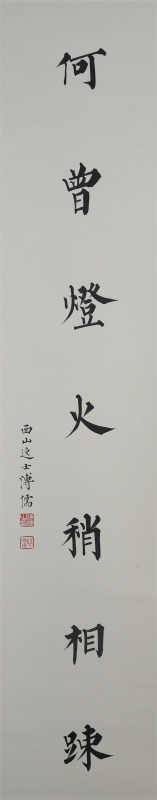 何曾燈火稍相踈
西山逸士溥儒